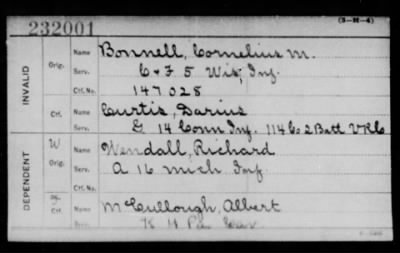 232001
(3-M-4)
INVALID
Orig. Name Bonnell, Cornelius M.
Serv. C & F 5 Wis. Inf.
Ctf. No. 147028
Ctf. Name Curtis, Darius
Serv. G 14 Conn Inf. 114 Co 2 Batt VRC
DEPENDENT
W Orig. Name Wendall, Richard
Serv. A 16 Mich Inf
Ctf. No.
Ctf. Name McCullough, Albert
H Pa Cav